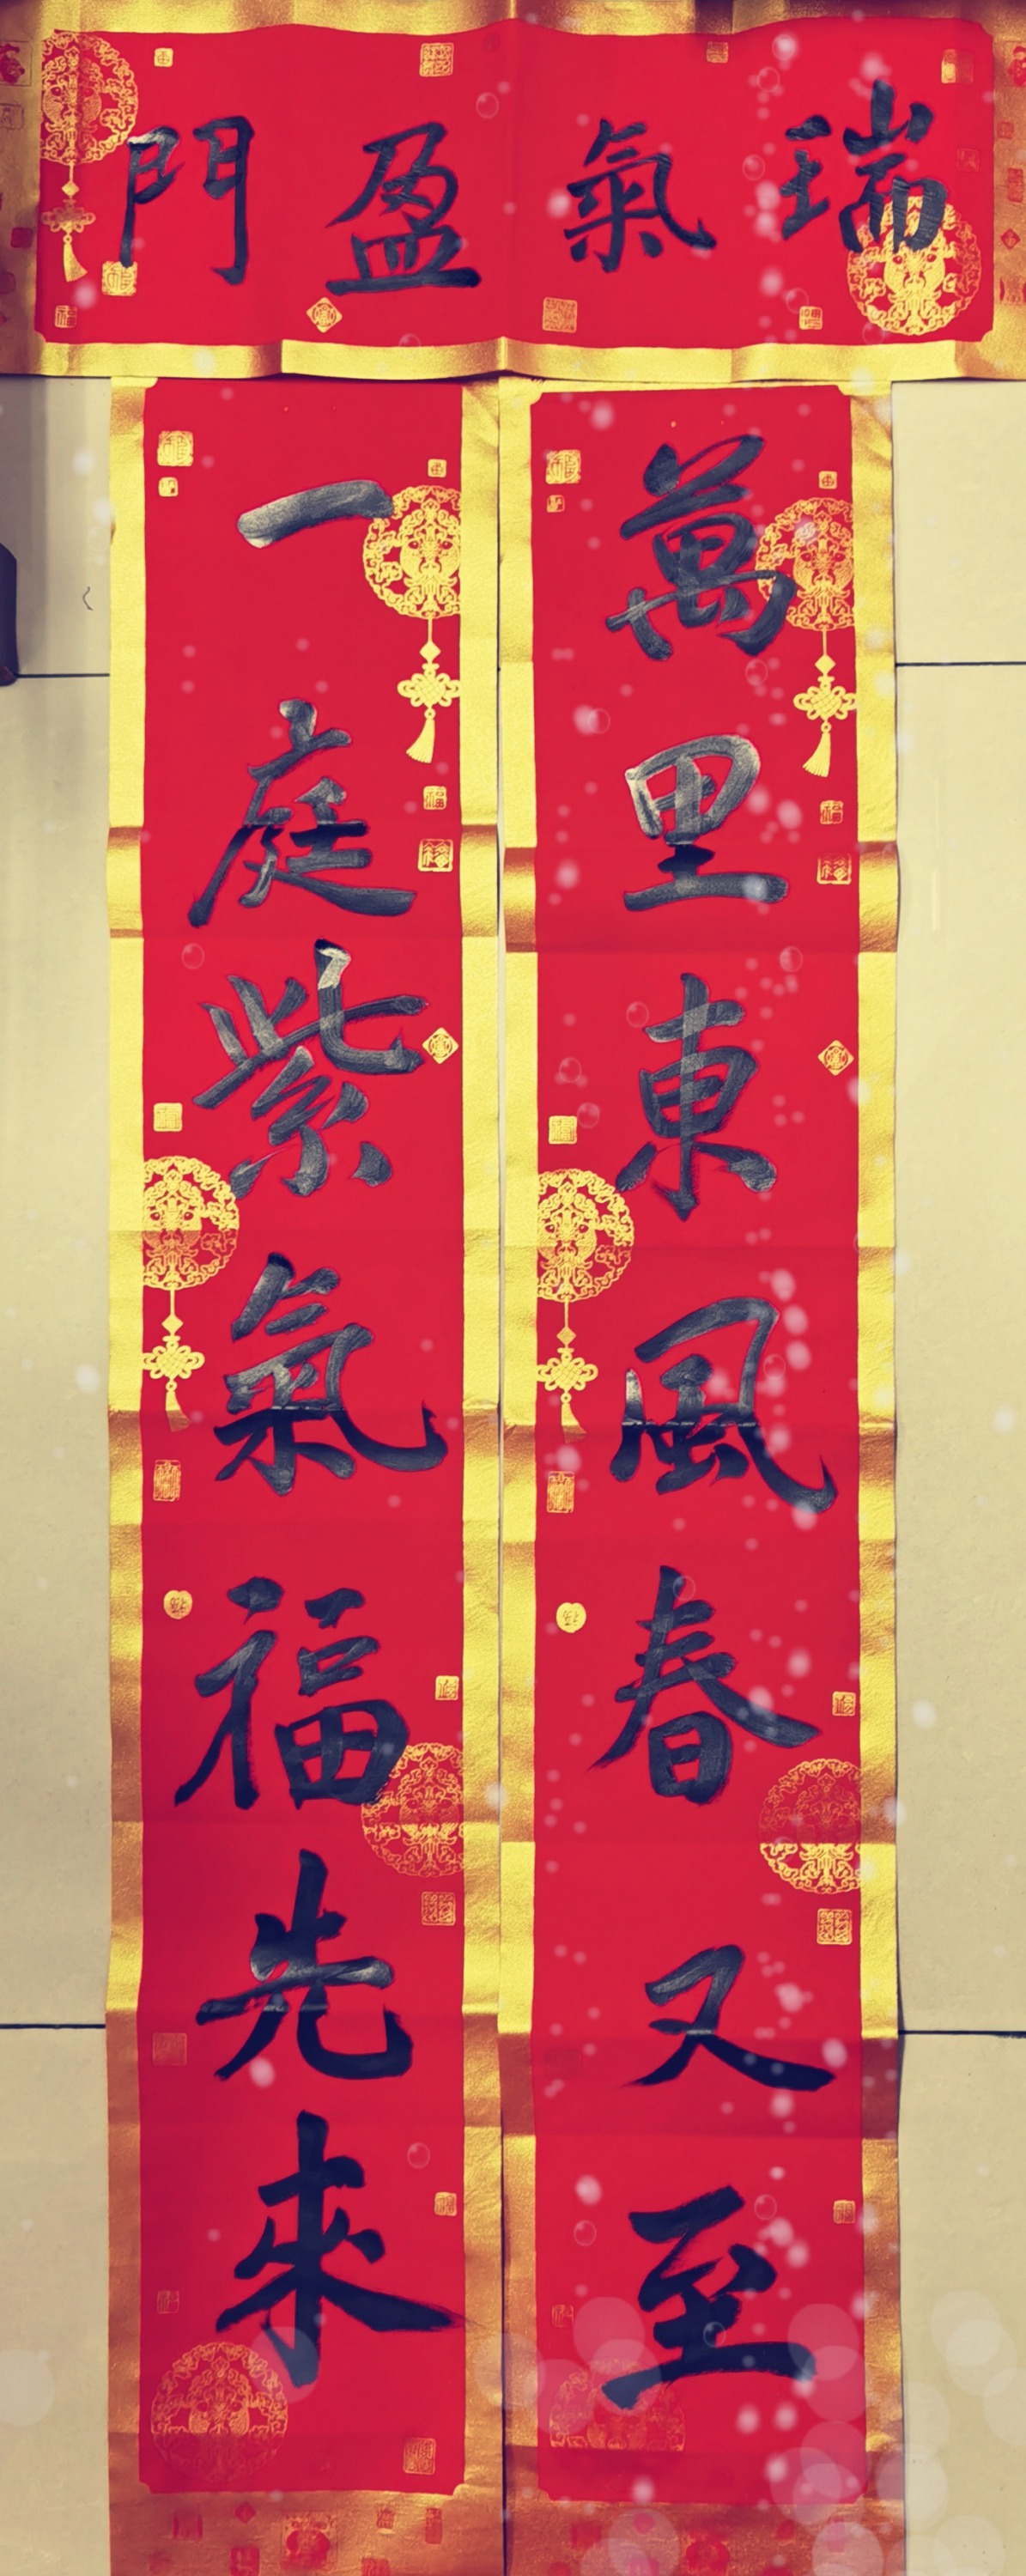 瑞氣盈門
萬里東風春又至
一庭紫氣福先來